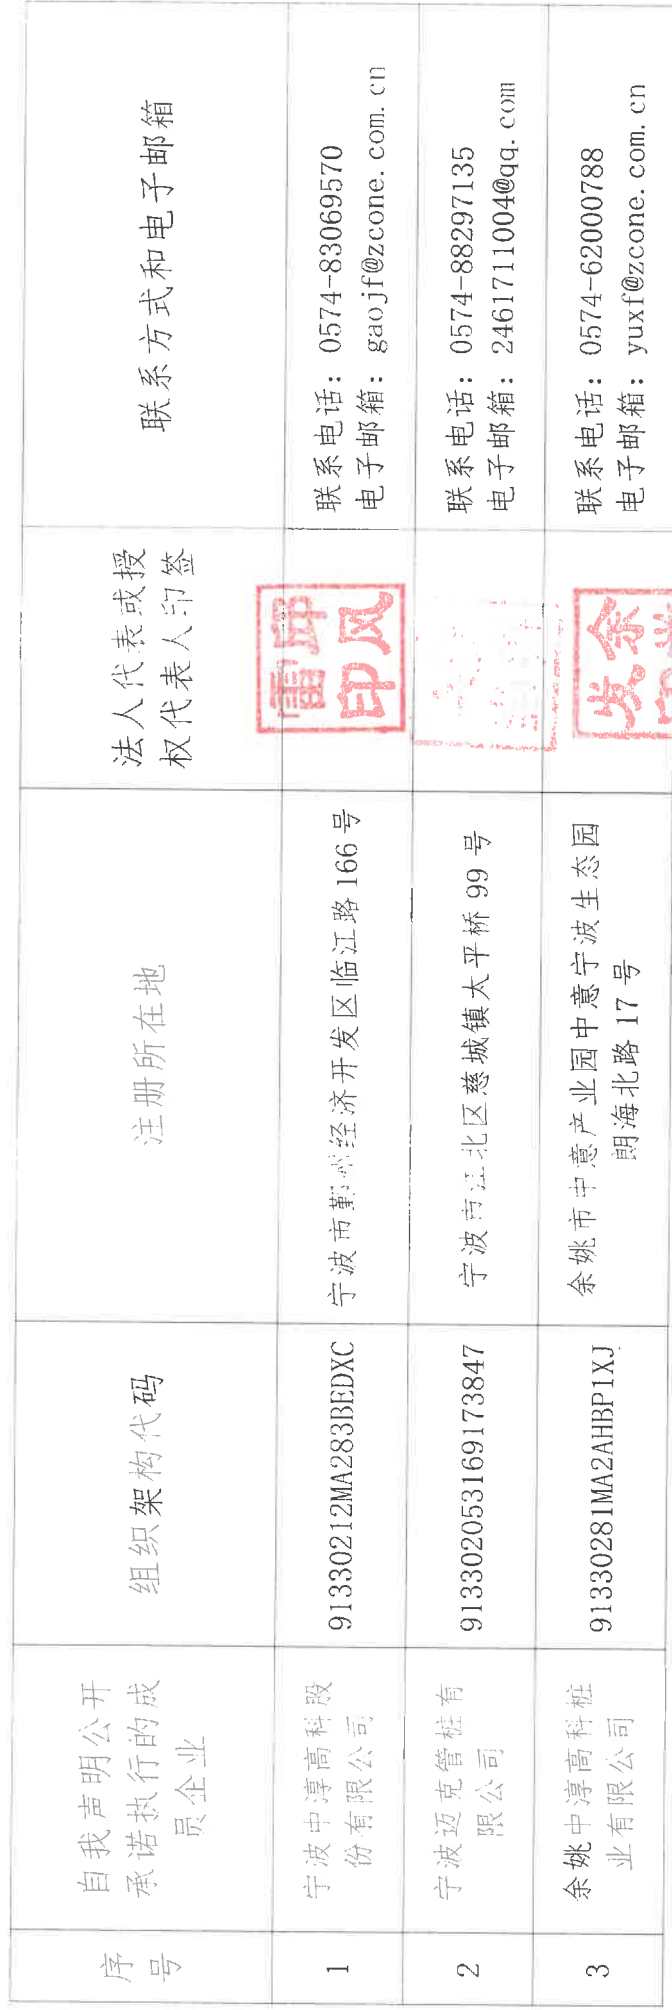 序
号
自我声明公开
承诺执行的成
员企业
组织架构代码
注册所在地
法人代表或授
权代表人印签
联系方式和电子邮箱
1
宁波中淳高科股
份有限公司
91330212MA283BEDXC
宁波市鄞州经济开发区临江路 166 号
印风
联系电话: 0574-83069570
电子邮箱: gaojf@zcone.com.cn
2
宁波迈克管桩有
限公司
913302053169173847
宁波市江北区慈城镇太平桥 99 号
联系电话: 0574-88297135
电子邮箱: 2461711004@qq.com
3
余姚中淳高科桩
业有限公司
91330281MA2AHBP1XJ
余姚市中意产业园中意宁波生态园
朗海北路 17 号
发余
联系电话: 0574-62000788
电子邮箱: yuxf@zcone.com.cn